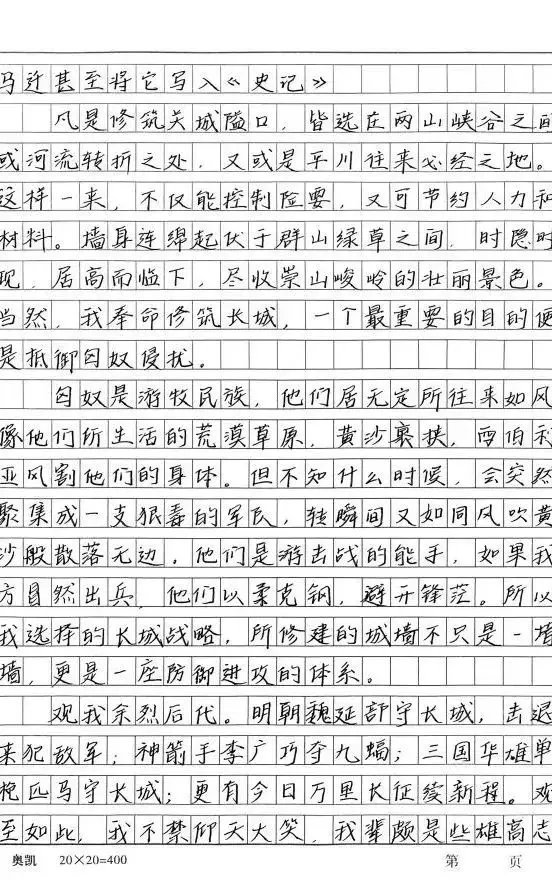 马迁甚至将它写入《史记》
凡是修筑关城隘口，皆选在两山峡谷之间
或河流转折之处，又或是平川往来必经之地。
这样一来，不仅能控制险要，又可节约人力和
材料。墙身连绵起伏于群山绿草之间，时隐时
现，居高而临下，尽收崇山峻岭的壮丽景色。
当然，我奉命修筑长城，一个最重要的目的便
是抵御匈奴侵扰。
匈奴是游牧民族，他们居无定所往来如风
像他们所生活的荒漠草原，黄沙裹挟，西伯利
亚风割他们的身体。但不知什么时候，会突然
聚集成一支狠毒的军民，转瞬间又如同风吹黄
沙般散落无边。他们是游击战的能手，如果我
方目然出兵，他们以柔克钢，避开锋茫。所以
我选择的长城战略，所修建的城墙不只是一墙
墙，更是一座防御进攻的体系。
观我余烈后代。明朝魏延部守长城，击退
来犯敌军；神箭手李广巧夺九蝠；三国华雄单
枪匹马守长城；更有今日万里长征续新程。观
至如此，我不禁仰天大笑，我辈颇是些雄高志
奥凯 20×20=400 第 页